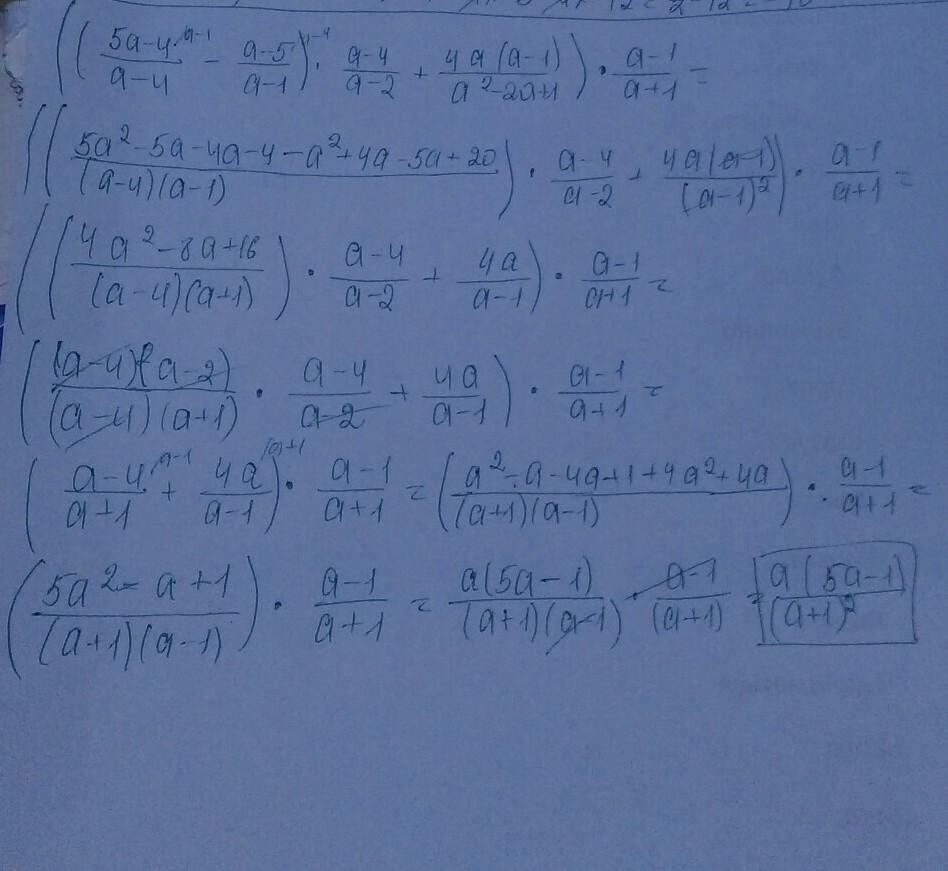 ((5a-4/a-4 - a-5/a-1) · a-4/a-2 + 4a(a-1)/a²-2a+1) · a-1/a+1 =
((5a²-5a-4a-4-a²+4a-5a+20/(a-4)(a-1)) · a-4/a-2 + 4a(a-1)/(a-1)²) · a-1/a+1 =
((4a²-8a+16/(a-4)(a+1)) · a-4/a-2 + 4a/a-1) · a-1/a+1 =
((a-4)(a-2)/(a-4)(a+1) · a-4/a-2 + 4a/a-1) · a-1/a+1 =
(a-4/a+1 + 4a/a-1) · a-1/a+1 = (a²-a-4a+1+4a²+4a/(a+1)(a-1)) · a-1/a+1 =
(5a²-a+1/(a+1)(a-1)) · a-1/a+1 = a(5a-1)/(a+1)(a-1) · a-1/(a+1) = a(5a-1)/(a+1)²